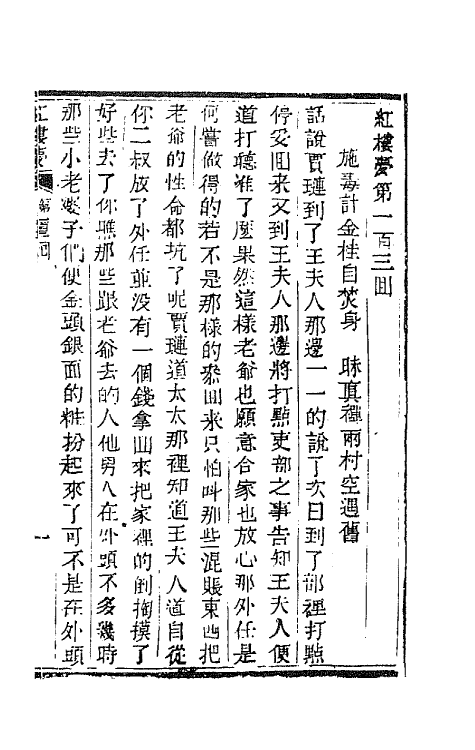 紅樓夢第一百三回
施毒計金桂自焚身　昧真禪雨村空遇舊
話說賈璉到了王夫人那邊一一的說了次日到了部裡打點
停妥回来又到王夫人那邊將打點吏部之事告知王夫人便
道打聽准了麼果然這樣老爺也願意合家也放心那外任是
何嘗做得的若不是那樣的叅回来只怕叫那些混賬東西把
老爺的性命都坑了呢賈璉道太太那裡知道王夫人道自從
你二叔放了外任並没有一個錢拿回來把家裡的倒掏摸了
好些去了你瞧那些跟老爺去的人他男人在外頭不多幾時
那些小老婆子們便金頭銀面的粧扮起來了可不是在外頭
紅樓夢
第 回
一